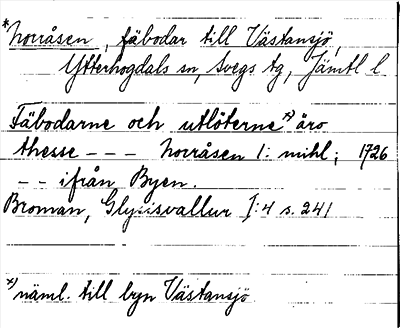 *Norråsen, fäbodar till Västansjö,
Ytterhogdals sn, Svegs tg, Jämtl l
Fäbodarne och utlöterne *) äro
thesse - - - Norråsen 1: mihl; 1726
- - ifrån Byen.
Broman, Glysisvallur I:4 s. 241
*) näml. till byn Västansjö